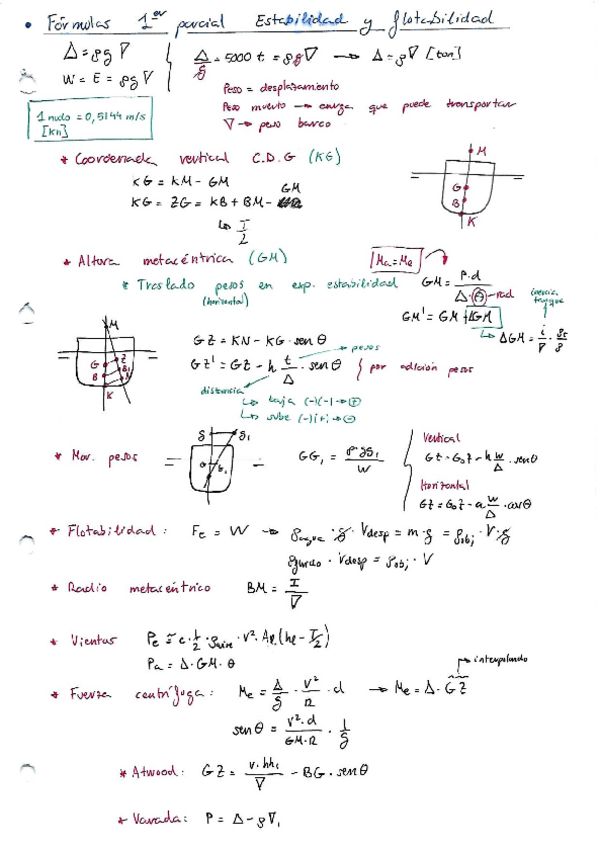 • Fórmulas 1er parcial Estabilidad y flotabilidad
Δ = ρg∇
W = E = ρg∇
Δ/g = 5000 t = ρg∇ → Δ = ρ∇ [ton]
Peso = desplazamiento
Peso muerto → carga que puede transportar
∇ → peso barco
1 nudo = 0,5144 m/s
[kn]
* Coordenada vertical C.D.G (KG)
KG = KM - GM
KG = ZG = KB + BM - GM
↳ I/2
M
G
B
K
* Altura metacéntrica (GM)
Ma = Me
* Traslado pesos en exp. estabilidad
(horizontal)
GM = P·d / Δ·θ → rad
GM' = GM + ΔGM
↳ ΔGM = i/∇ · ρl/ρ
inercia tanque
M
G Z
B B1
K N
GZ = KN - KG · senθ
GZ' = GZ - h t/Δ · senθ } por adición pesos
pesos
distancia
↳ baja (-)(-) → (+)
↳ sube (-)(+) → (-)
* Mov. pesos
g g1
GG1 = P·gg1 / W
Vertical
GZ = G0Z - h w/Δ · senθ
Horizontal
GZ = G0Z - a w/Δ · cosθ
* Flotabilidad: Fe = W → ρagua · g · Vdesp = m · g = ρobj · V · g
· Vdesp = ρobj · V
* Radio metacéntrico BM = I/∇
* Vientos
Pa = Δ · GM · θ
→ interpolando
* Fuerza centrífuga: Me = Δ/g · V²/R · d → Me = Δ · GZ
senθ = V²·d / GM·R · 1/g
* Atwood: GZ = v·hh1 / ∇ - BG · senθ
* Varada: P = Δ - ρ∇1